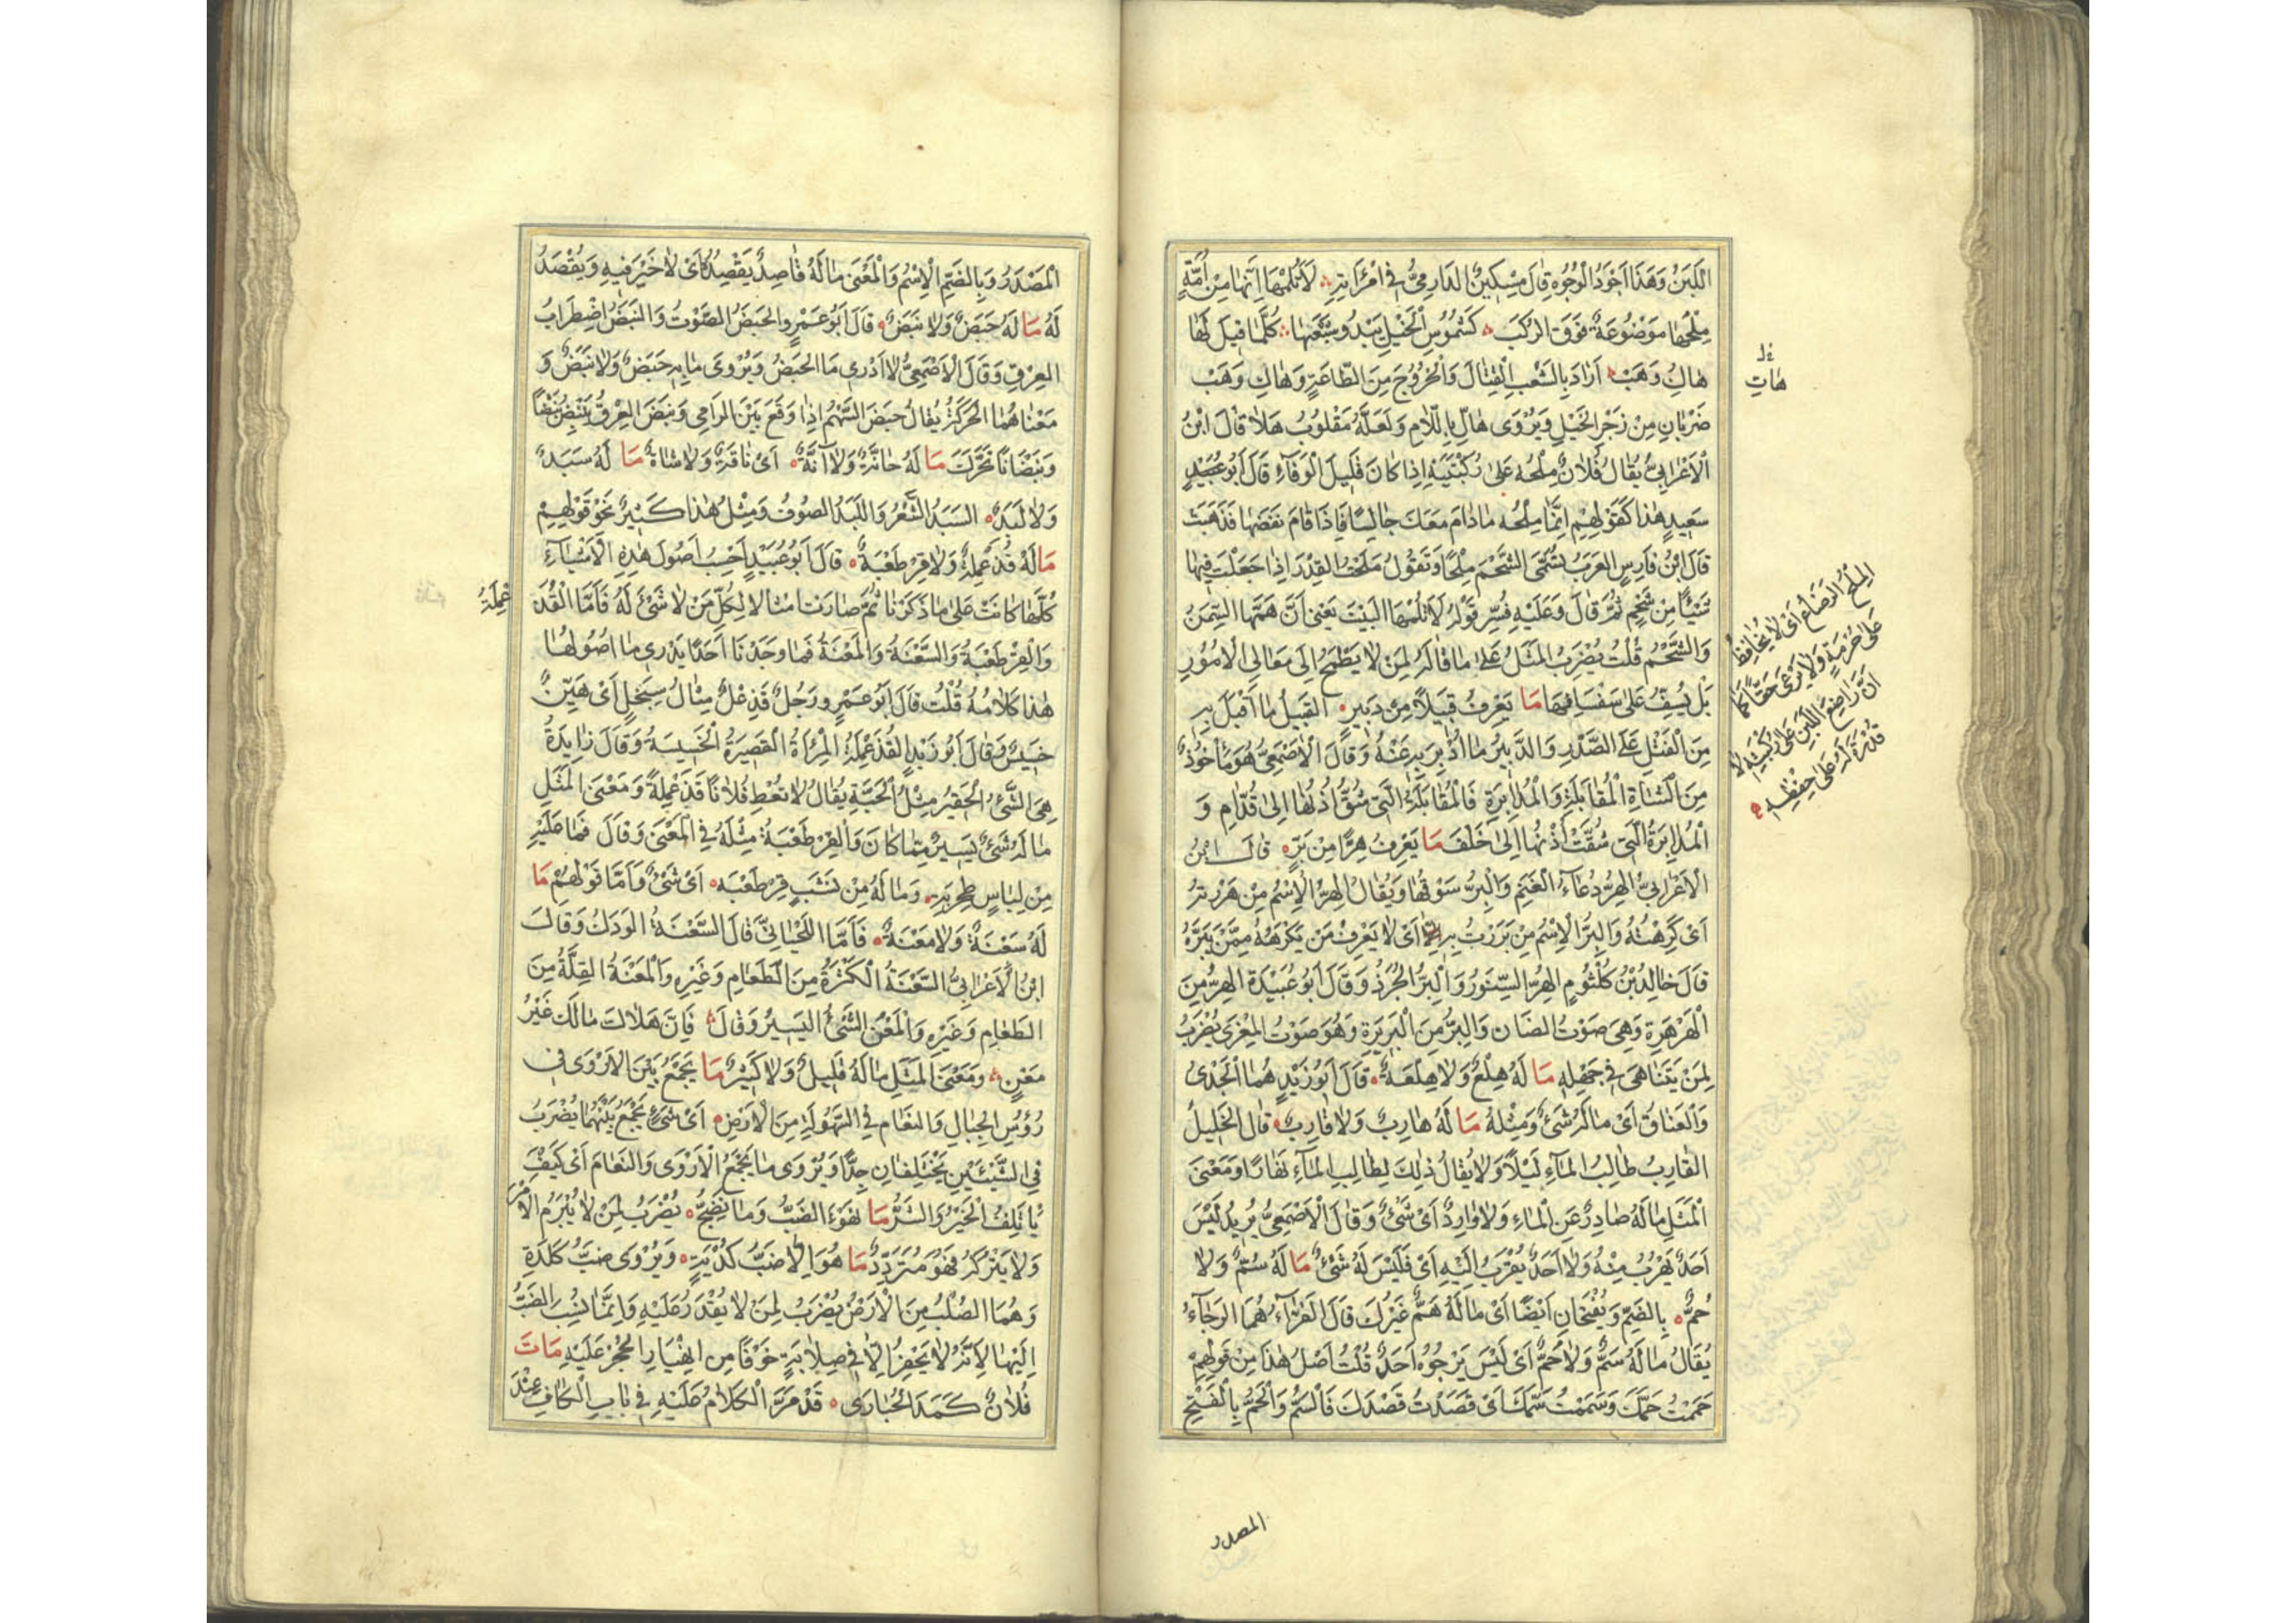 اللَّبَنْ وَهَذَا اَجْوَدُ الْوُجُوهِ قَالَ مِسْكِينٌ الدَارِمِيُّ فِي امْرَأَتِهِ لَا تَلُمْهَا اِنَّهَا مِنْ اُمَّةٍ
مِلْحُهَا مَوْضُوعَةٌ فَوَقَ الرُّكَبْ كَشَمُوسِ الْخَيْلِ يَبْدُو شَغْبُهَا كُلَّمَا قِيلَ لَهَا
هَابِ وَهَبْ اَرَادَ بِالشَّغْبِ الْقِتَالَ وَالْخُرُوجَ مِنَ الطَّاعَةِ وَهَابِ وَهَبْ
ضَرْبَانِ مِنْ زَجْرِ الْخَيْلِ وَيُرْوَى هَالِ بِاللَّامِ وَلَعَلَّهُ مَقْلُوبُ هَلَا قَالَ ابْنُ
الْاَعْرَابِيِّ يُقَالُ فُلَانٌ مِلْحُهُ عَلَى رُكْبَتَيْهِ اِذَا كَانَ قَلِيلَ الْوَفَاءِ قَالَ اَبُو عُبَيْدٍ
سَعِيدٍ هٰذَا كَقَوْلِهِمْ اِنَّمَا مِلْحُهُ مَادَامَ مَعَكَ جَالِسًا فَاِذَا قَامَ نَفَضَهَا فَذَهَبَتْ
قَالَ ابْنُ فَارِسٍ الْعَرَبُ تُسَمِّى الشَّحْمَ مِلْحًا وَتَقُولُ مَلَحْتُ الْقِدْرَ اِذَا جَعَلْتَ فِيهَا
شَيْئًا مِنْ شَحْمٍ ثُمَّ قَالَ وَعَلَيْهِ فُسِّرَ قَوْلُهُ لَا تَلُمْهَا الْبَيْتَ يَعْنِي اَنَّ هَمَّهَا السِّمَنُ
وَالشَّحْمُ قُلْتُ يُضْرَبُ الْمَثَلُ عَلَى مَا قَالَهُ لِمَنْ لَا يَطْمَحُ اِلَى مَعَالِي الْاُمُورِ
بَلْ يُسِفُّ عَلَى سَفْسَافِهَا مَا يَعْرِفُ قَبِيلًا مِنْ دَبِيرٍ الْقَبِيلُ مَا اَقْبَلَ بِهِ
مِنَ الْفَتْلِ عَلَى الصَّدْرِ وَالدَّبِيرُ مَا اُدْبِرَ بِهِ عَنْهُ وَقَالَ الْاَصْمَعِيُّ هُوَ مَأْخُوذٌ
مِنَ الشَّاةِ الْمُقَابَلَةِ وَالْمُدَابَرَةِ فَالْمُقَابَلَةُ الَّتِي شُقَّ اُذُنُهَا اِلَى قُدَّامٍ وَ
الْمُدَابَرَةُ الَّتِي شُقَّتْ اُذُنُهَا اِلَى خَلَفَ مَا يَعْرِفُ هِرًّا مِنْ بِرٍّ قَالَ ابْنُ
الْاَعْرَابِيِّ الْهِرُّ دُعَاءُ الْغَنَمِ وَالْبِرُّ سَوْقُهَا وَيُقَالُ الْهِرُّ الْاِسْمُ مِنْ هَرَرْتُهُ
اَىْ كَرِهْتُهُ وَالْبِرُّ الْاِسْمُ مِنْ بَرَرْتُ بِهِ اَىْ لَا يَعْرِفُ مَنْ يَكْرَهُهُ مِمَّنْ يَبَرُّهُ
قَالَ خَالِدُ بْنُ كُلْثُومٍ الْهِرُّ السِّنَّوْرُ وَالْبِرُّ الْجُرَذُ وَقَالَ اَبُو عُبَيْدَةَ الْهِرُّ مِنَ
الْهَرْهَرَةِ وَهِيَ صَوْتُ الضَّأْنِ وَالْبِرُّ مِنَ الْبَرْبَرَةِ وَهُوَ صَوْتُ الْمِعْزَى يُضْرَبُ
لِمَنْ يَتَنَاهَى فِي جَهْلِهِ مَا لَهُ هِلَّعٌ وَلَا هِلَّعَةٌ قَالَ اَبُو زَيْدٍ هُمَا الْجَدْىُ
وَالْعَنَاقُ اَىْ مَا لَهُ شَىْءٌ وَمِثْلُهُ مَا لَهُ هَارِبٌ وَلَا قَارِبٌ قَالَ الْخَلِيلُ
الْقَارِبُ طَالِبُ الْمَاءِ لَيْلًا وَلَا يُقَالُ ذٰلِكَ لِطَالِبِ الْمَاءِ نَهَارًا وَمَعْنَى
الْمَثَلِ مَا لَهُ صَادِرٌ عَنِ الْمَاءِ وَلَا وَارِدٌ اَىْ شَىْءٌ وَقَالَ الْاَصْمَعِيُّ يُرِيدُ لَيْسَ
اَحَدٌ يَهْرُبُ مِنْهُ وَلَا اَحَدٌ يَقْرَبُ اِلَيْهِ اَىْ فَلَيْسَ لَهُ شَىْءٌ مَا لَهُ سُمٌّ وَلَا
حُمٌّ بِالضَّمِّ وَيُفْتَحَانِ اَيْضًا اَىْ مَا لَهُ هَمٌّ غَيْرُكَ قَالَ الْفَرَّاءُ هُمَا الرَّجَاءُ
يُقَالُ مَا لَهُ سَمٌّ وَلَا حَمٌّ اَىْ لَيْسَ يَرْجُوهُ اَحَدٌ قُلْتُ اَصْلُ هٰذَا مِنْ قَوْلِهِمْ
حَمَمْتُ حَمَّكَ وَسَمَمْتُ سَمَّكَ اَىْ قَصَدْتُ قَصْدَكَ فَالسَّمُّ وَالْحَمُّ بِالْفَتْحِ
هَابِ
الْمِلْحُ الرَّضَاعُ اَىْ لَا يُحَافِظُ
عَلَى حُرْمَةٍ وَلَا يَرْعَى حَقًّا كَمَا
اَنَّ وَاضِعَ اللَّبَنِ عَلَى رُكْبَتِهِ لَا
قُدْرَةَ لَهُ عَلَى حِفْظِهِ
المصدر
الْمَصْدَرُ وَبِالضَّمِّ الْاِسْمُ وَالْمَعْنَى مَا لَهُ قَاصِدٌ يَقْصِدُهُ اَىْ لَا خَيْرَ فِيهِ وَيُقْصَدُ
لَهُ مَا لَهُ حَبَضٌ وَلَا نَبَضٌ قَالَ اَبُو عَمْرٍو الْحَبَضُ الصَّوْتُ وَالنَّبَضُ اضْطِرَابُ
الْعِرْقِ وَقَالَ الْاَصْمَعِيُّ لَا اَدْرِى مَا الْحَبَضُ وَيُرْوَى مَا بِهِ حَبَضٌ وَلَا نَبَضٌ وَ
مَعْنَاهُمَا الْحَرَكَةُ يُقَالُ حَبَضَ السَّهْمُ اِذَا وَقَعَ بَيْنَ الرَامِى وَنَبَضَ الْعِرْقُ يَنْبِضُ نَبْضًا
وَنَبَضَانًا تَحَرَّكَ مَا لَهُ حَانَّةٌ وَلَا آنَّةٌ اَىْ نَاقَةٌ وَلَا شَاةٌ مَا لَهُ سَبَدٌ
وَلَا لَبَدٌ السَّبَدُ الشَّعْرُ وَاللَّبَدُ الصُّوفُ وَمِثْلُ هٰذَا كَثِيرٌ نَحْوُ قَوْلِهِمْ
مَا لَهُ قُذَعْمِلَةٌ وَلَا قِرْطَعْبَةٌ قَالَ اَبُو عُبَيْدٍ اَحْسِبُ اُصُولَ هٰذِهِ الْاَشْيَاءِ
كُلَّهَا كَانَتْ عَلَى مَا ذَكَرْنَا ثُمَّ صَارَتْ امْثَالًا لِكُلِّ مَنْ لَا شَىْءَ لَهُ فَاَمَّا الْقُذَ
عْمِلَةُ
وَالْقِرْطَعْبَةُ وَالسَّعْنَةُ وَالْمَعْنَةُ فَمَا وَجَدْنَا اَحَدًا يَدْرِى مَا اُصُولُهَا
هٰذَا كَلَامُهُ قُلْتُ قَالَ اَبُو عَمْرٍو رَجُلٌ قُذَعْلٌ مِثَالُ سِبَحْلٍ اَىْ هَيِّنٌ
خَسِيسٌ وَقَالَ اَبُو زَيْدٍ الْقُذَعْمِلَةُ الْمَرْأَةُ الْقَصِيرَةُ الْخَسِيسَةُ وَقَالَ زَايِدَةُ
هِىَ الشَّىْءُ الْحَقِيرُ مِثْلُ الْحَبَّةِ يُقَالُ لَا تُعْطِ فُلَانًا قُذَعْمِلَةً وَمَعْنَى الْمَثَلِ
مَا لَهُ شَىْءٌ يَسِيرٌ مِمَّا كَانَ وَالْقِرْطَعْبَةُ مِثْلُهُ فِي الْمَعْنَى وَقَالَ فَمَا عَلَيْهِ
مِنْ لِبَاسٍ طِحْرِبَهْ وَمَا لَهُ مِنْ نَشَبٍ قِرْطَعْبَهْ اَىْ شَىْءٌ وَاَمَّا قَوْلُهُمْ مَا
لَهُ سَعْنَةٌ وَلَا مَعْنَةٌ فَاَمَّا اللِّحْيَانِيُّ قَالَ السَّعْنَةُ الْوَدَكُ وَقَالَ
ابْنُ الْاَعْرَابِيِّ السَّعْنَةُ الْكَثْرَةُ مِنَ الطَّعَامِ وَغَيْرِهِ وَالْمَعْنَةُ الْقِلَّةُ مِنَ
الطَّعَامِ وَغَيْرِهِ وَالْمَعْنُ الشَّىْءُ الْيَسِيرُ وَقَالَ فَاِنَّ هَلَاكَ مَالِكَ غَيْرُ
مَعْنٍ وَمَعْنَى الْمَثَلِ مَا لَهُ قَلِيلٌ وَلَا كَثِيرٌ مَا يَجْمَعُ بَيْنَ الْاَرْوَى فِي
رُؤُسِ الْجِبَالِ وَالنَّعَامِ فِي السُّهُولَةِ مِنَ الْاَرْضِ اَىْ شَىْءٌ يَجْمَعُ بَيْنَهُمَا يُضْرَبُ
فِي الشَّيْئَيْنِ يَخْتَلِفَانِ جِدًّا وَيُرْوَى مَا يَجْمَعُ الْاَرْوَى وَالنَّعَامَ اَىْ كَيْفَ
يَأْتَلِفُ الْخَيْرُ وَالشَّرُّ مَا لهوَىْ الضَّبُّ وَمَا نَضِجَ يُضْرَبُ لِمَنْ لَا يُبْرِمُ الْاَمْرَ
وَلَا يَتْرُكُهُ فَهُوَ مُتَرَدِّدٌ مَا هُوَ اِلَّا ضَبُّ كُدْيَةٍ وَيُرْوَى ضَبُّ كَلَدَةٍ
وَهُمَا الصُّلْبُ مِنَ الْاَرْضِ يُضْرَبُ لِمَنْ لَا يُقْدَرُ عَلَيْهِ وَاِنَّمَا نُسِبَ الضَّبُّ
اِلَيْهَا لِاَنَّهُ لَا يَحْفِرُ اِلَّا فِي صَلَابَةٍ خَوْفًا مِن انْهِيَارِ الْجُحْرِ عَلَيْهِ مَاتَ
فُلَانٌ كَمَدَ الْحُبَارَى قَدْ مَرَّ الْكَلَامُ عَلَيْهِ فِي بَابِ الْكَافِ عِنْدَ